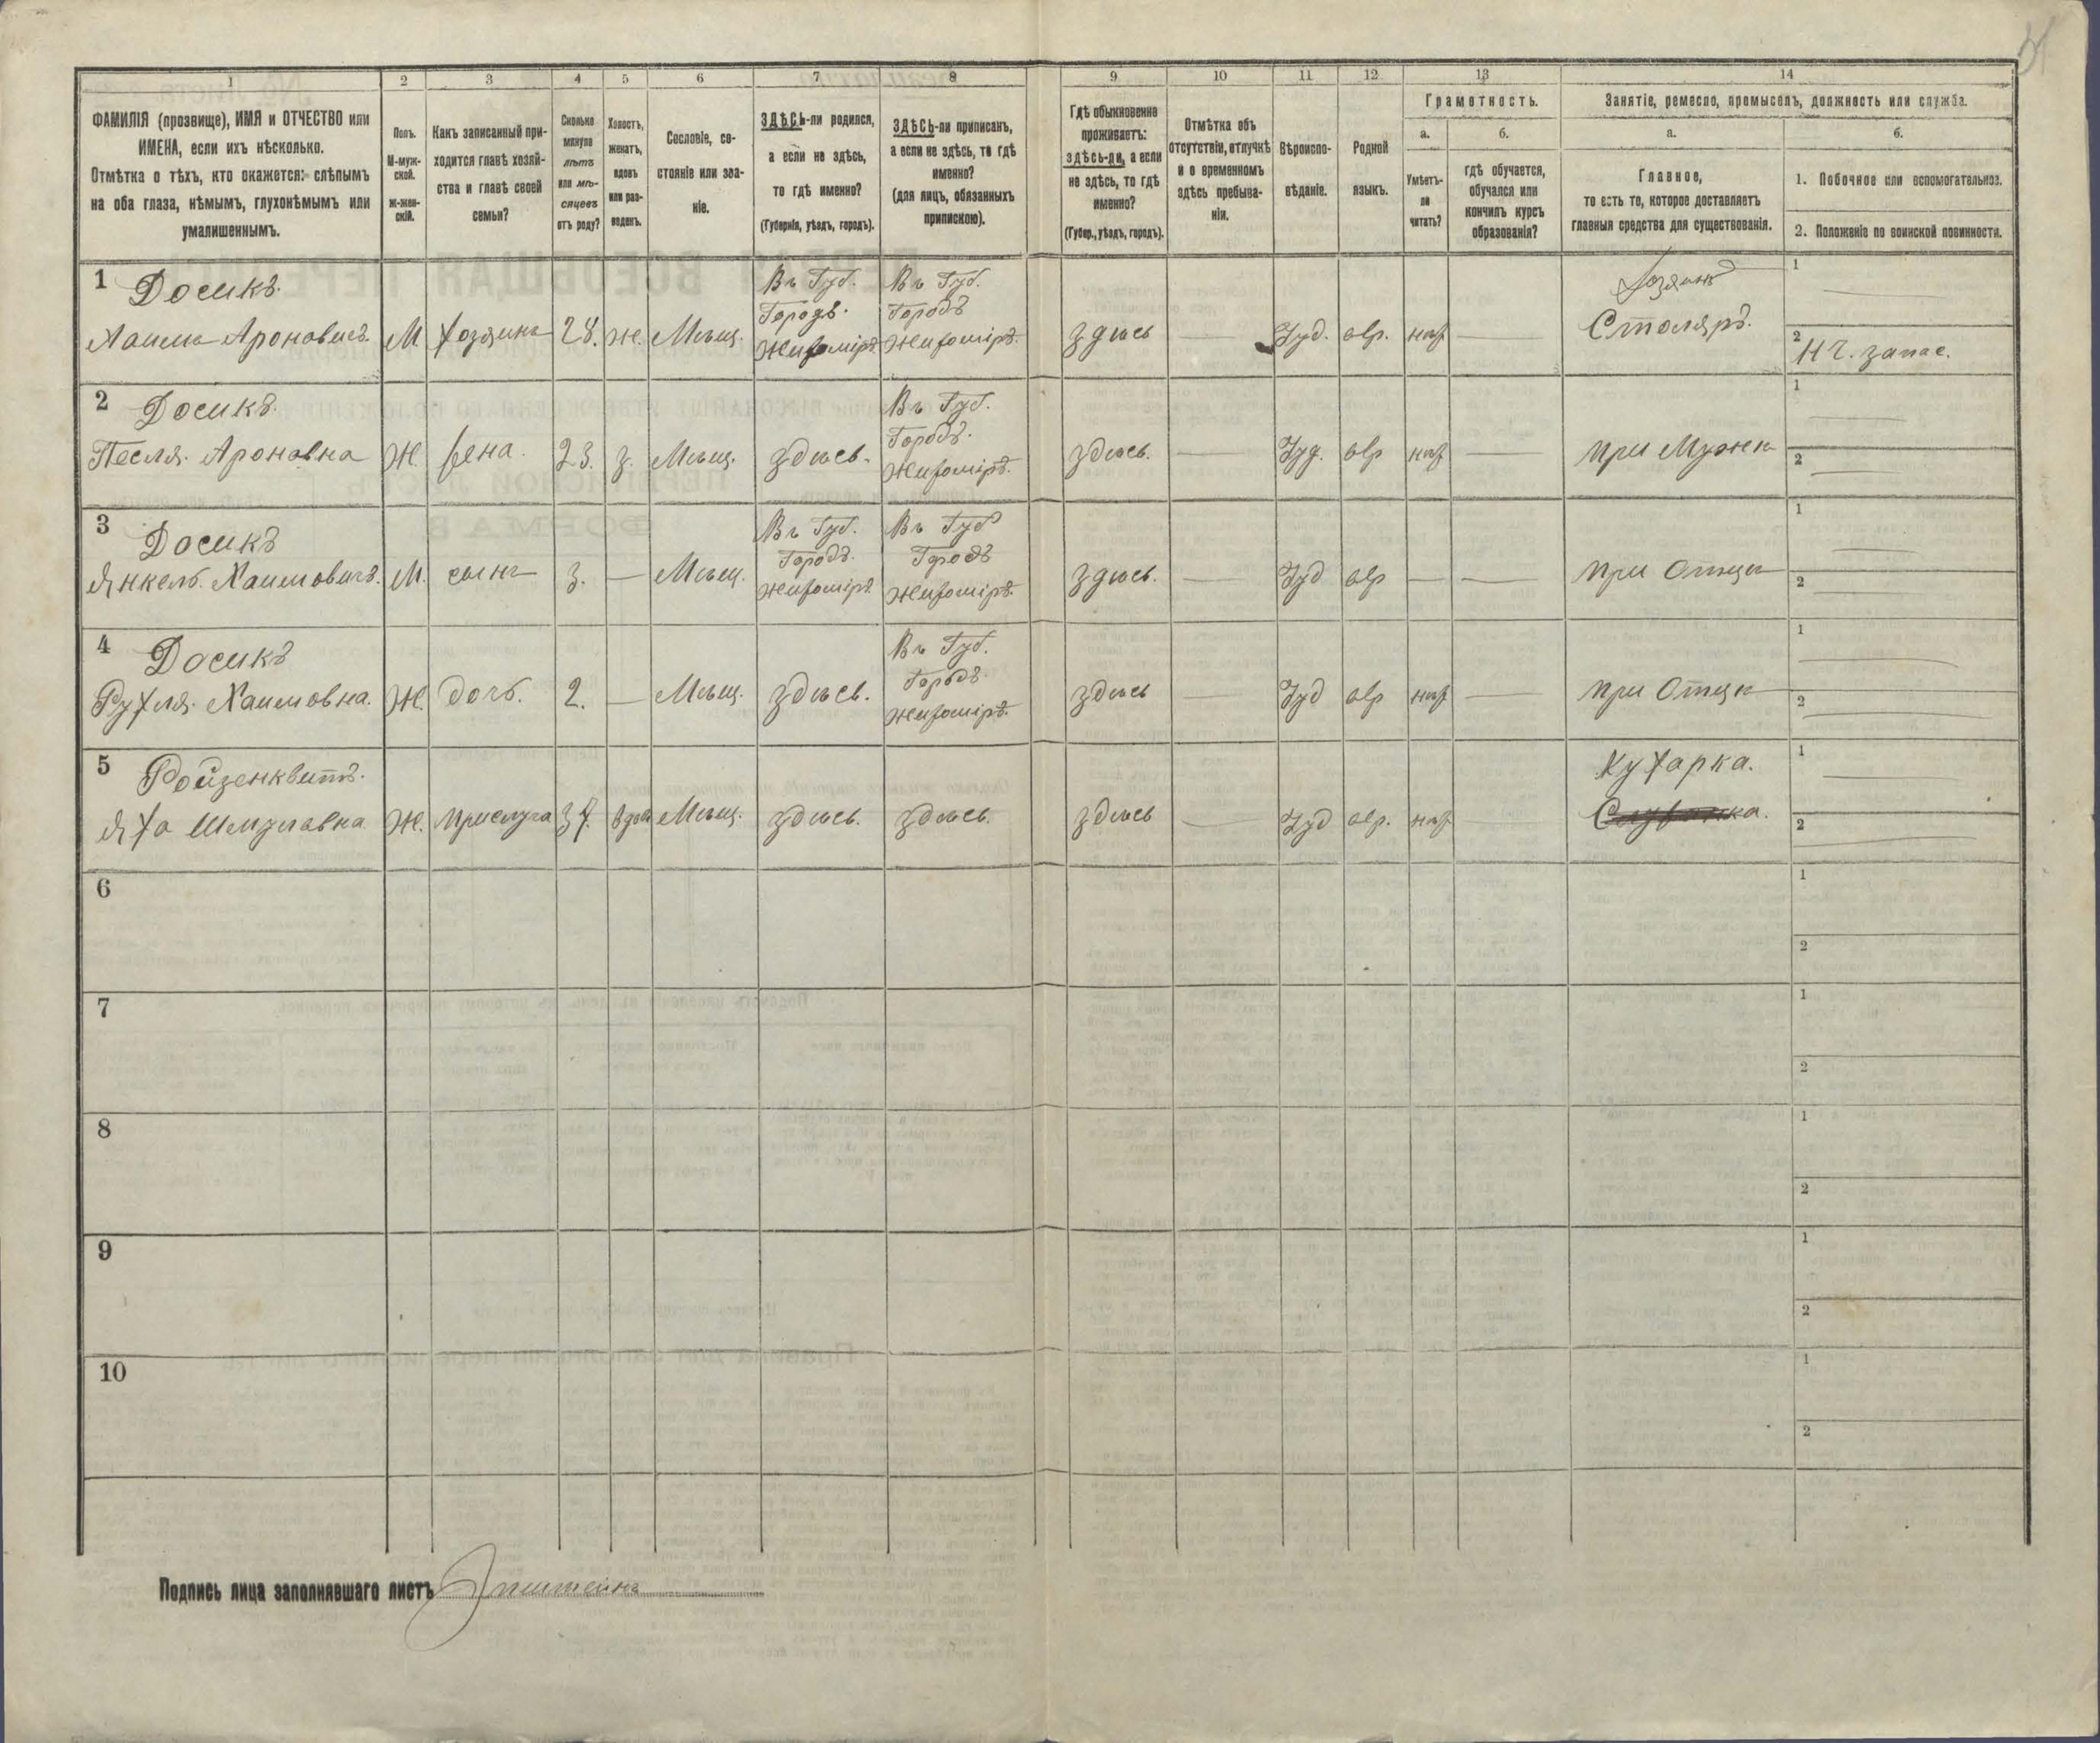 1
2
3
4
5
6
7
8
9
10
11
12
13
14
ФАМИЛІЯ (прозвище), ИМЯ и ОТЧЕСТВО или
ИМЕНА, если ихъ нѣсколько.
Отмѣтка о тѣхъ, кто окажется: слѣпымъ
на оба глаза, нѣмымъ, глухонѣмымъ или
умалишеннымъ.
Полъ.
М-муж-
ской.
Ж-жен-
скій.
Какъ записанный при-
ходится главѣ хозяй-
ства и главѣ своей
семьи?
Сколько
минуло
лѣтъ
или мѣ-
сяцевъ
отъ роду?
Холостъ,
женатъ,
вдовъ
или раз-
веденъ.
Сословіе, со-
стояніе или зва-
ніе.
ЗДѢСЬ-ли родился,
а если не здѣсь,
то гдѣ именно?
(Губернія, уѣздъ, городъ).
ЗДѢСЬ-ли приписанъ,
а если не здѣсь, то гдѣ
именно?
(для лицъ, обязанныхъ
припискою).
Гдѣ обыкновенно
проживаетъ:
здѣсь-ли, а если
не здѣсь, то гдѣ
именно?
(Губер., уѣздъ, городъ).
Отмѣтка объ
отсутствіи, отлучкѣ
и о временномъ
здѣсь пребыва-
ніи.
Вѣроиспо-
вѣданіе.
Родной
языкъ.
Грамотность.
а.
Умѣетъ-
ли
читать?
б.
гдѣ обучается,
обучался или
кончилъ курсъ
образованія?
Занятіе, ремесло, промыселъ, должность или служба.
а.
Главное,
то есть то, которое доставляетъ
главныя средства для существованія.
б.
1. Побочное или вспомогательное.
2. Положеніе по воинской повинности.
1 Досикъ.
Хаимъ Ароновичъ.
М
хозяинъ
28.
ж.
Мѣщ.
Въ Губ.
Городѣ.
Житомірѣ
Въ Губ.
Городѣ
Житомірѣ.
здѣсь
Іуд.
евр.
нѣт
Хозяинъ
Столяръ.
1
2
Н Ч. запас.
2 Досикъ.
Песля. Ароновна
Ж.
жена.
23.
з.
Мѣщ.
здѣсь.
Въ Губ.
Городѣ.
Житомірѣ.
здѣсь.
Іуд.
евр
нѣт
при Мужѣ
1
2
3 Досикъ
Янкель. Хаимовичъ.
М.
сынъ
3.
Мѣщ.
Въ Губ.
Городѣ.
Житомірѣ
Въ Губ
Городѣ
Житомірѣ.
здѣсь.
Іуд
евр
при Отцѣ
1
2
4 Досикъ
Рухля. Хаимовна.
Ж.
дочь.
2.
Мѣщ.
здѣсь.
Въ Губ.
Городѣ.
Житомірѣ.
здѣсь
Іуд
евр
нѣт
при Отцѣ
1
2
5 Ройзенквитъ.
Яха Шмулавна
Ж.
прислуга
37.
вдова
Мѣщ.
здѣсь.
здѣсь.
здѣсь
Іуд
евр.
нѣт
Кухарка.
1
2
6
1
2
7
1
2
8
1
2
9
1
2
10
1
2
Подпись лица заполнявшаго листъ Эпштейнъ